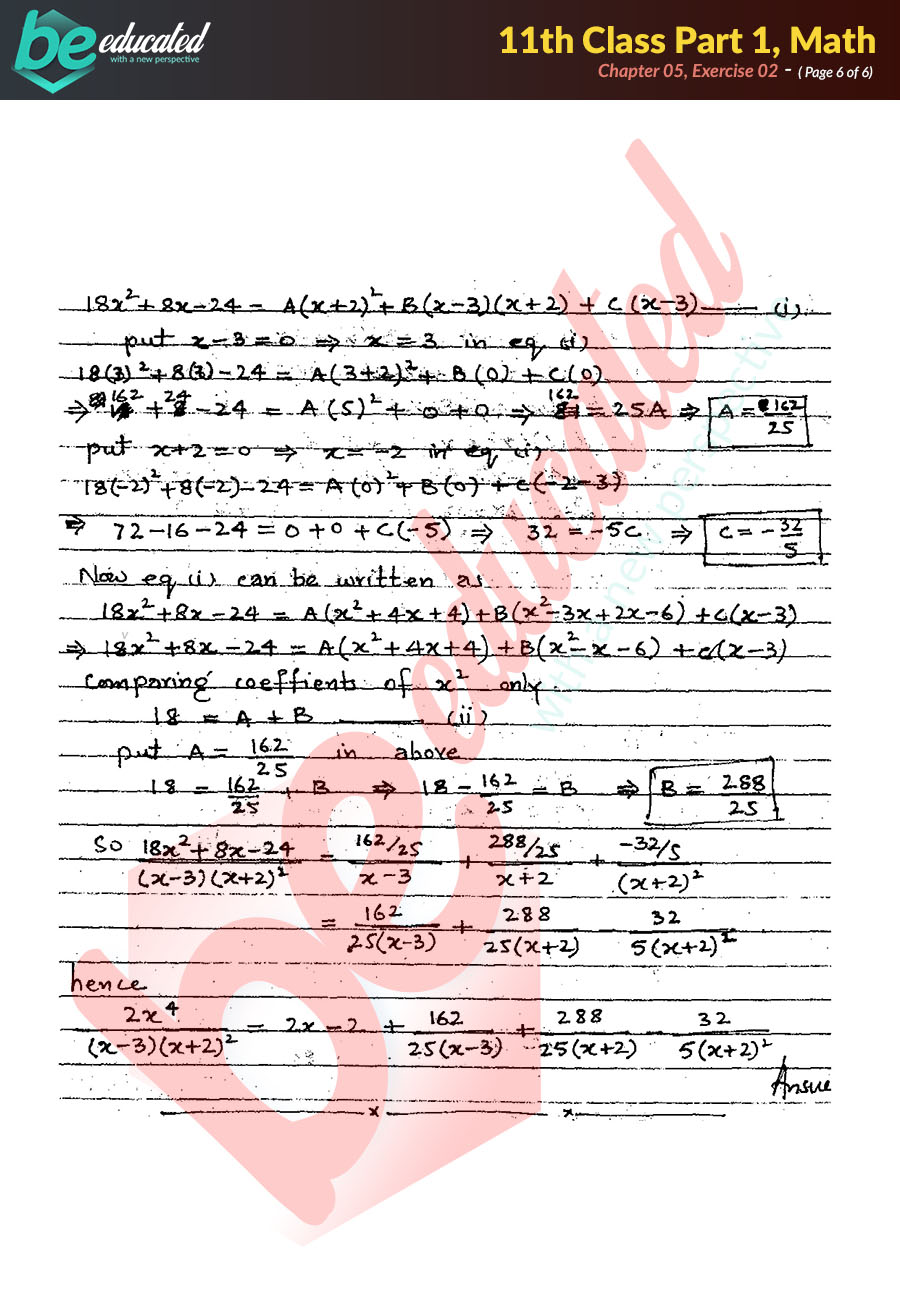 be educated
with a new perspective
11th Class Part 1, Math
Chapter 05, Exercise 02 - ( Page 6 of 6)
18x² + 8x - 24 = A(x+2)² + B(x-3)(x+2) + C(x-3) —— (i)
put x-3=0 ⇒ x=3 in eq (i)
18(3)² + 8(3) - 24 = A(3+2)² + B(0) + C(0)
⇒ 162 + 24 - 24 = A(5)² + 0 + 0 ⇒ 162 = 25A ⇒ A = 162/25
put x+2=0 ⇒ x=-2 in eq (i)
18(-2)² + 8(-2) - 24 = A(0)² + B(0) + C(-2-3)
⇒ 72-16-24 = 0+0+C(-5) ⇒ 32 = -5C ⇒ C = -32/5
Now eq (i) can be written as
18x² + 8x - 24 = A(x²+4x+4) + B(x²-3x+2x-6) + C(x-3)
⇒ 18x² + 8x - 24 = A(x²+4x+4) + B(x²-x-6) + C(x-3)
Comparing coeffients of x² only.
18 = A + B —— (ii)
put A = 162/25 in above
18 = 162/25 + B ⇒ 18 - 162/25 = B ⇒ B = 288/25
So (18x²+8x-24)/((x-3)(x+2)²) = (162/25)/(x-3) + (288/25)/(x+2) + (-32/5)/(x+2)²
= 162/(25(x-3)) + 288/(25(x+2)) - 32/(5(x+2)²)
hence
2x⁴/((x-3)(x+2)²) = 2x-2 + 162/(25(x-3)) + 288/(25(x+2)) - 32/(5(x+2)²)
Answe
be educated
with a new perspective